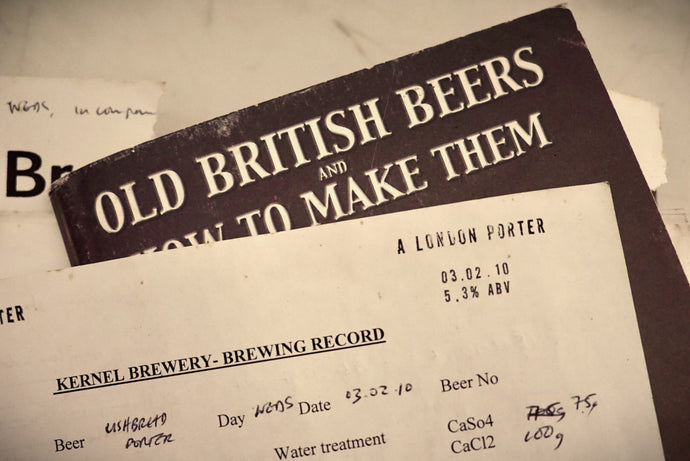 WEDS, in
Br
OLD BRITISH BEERS
AND
HOW TO MAKE THEM
A LONDON PORTER
03.02.10
5.3% ABV
TER
KERNEL BREWERY- BREWING RECORD
Beer
PORTER
Day WEDS Date 03.02.10 Beer No
Water treatment
CaSo4 75g
CaCl2 100g